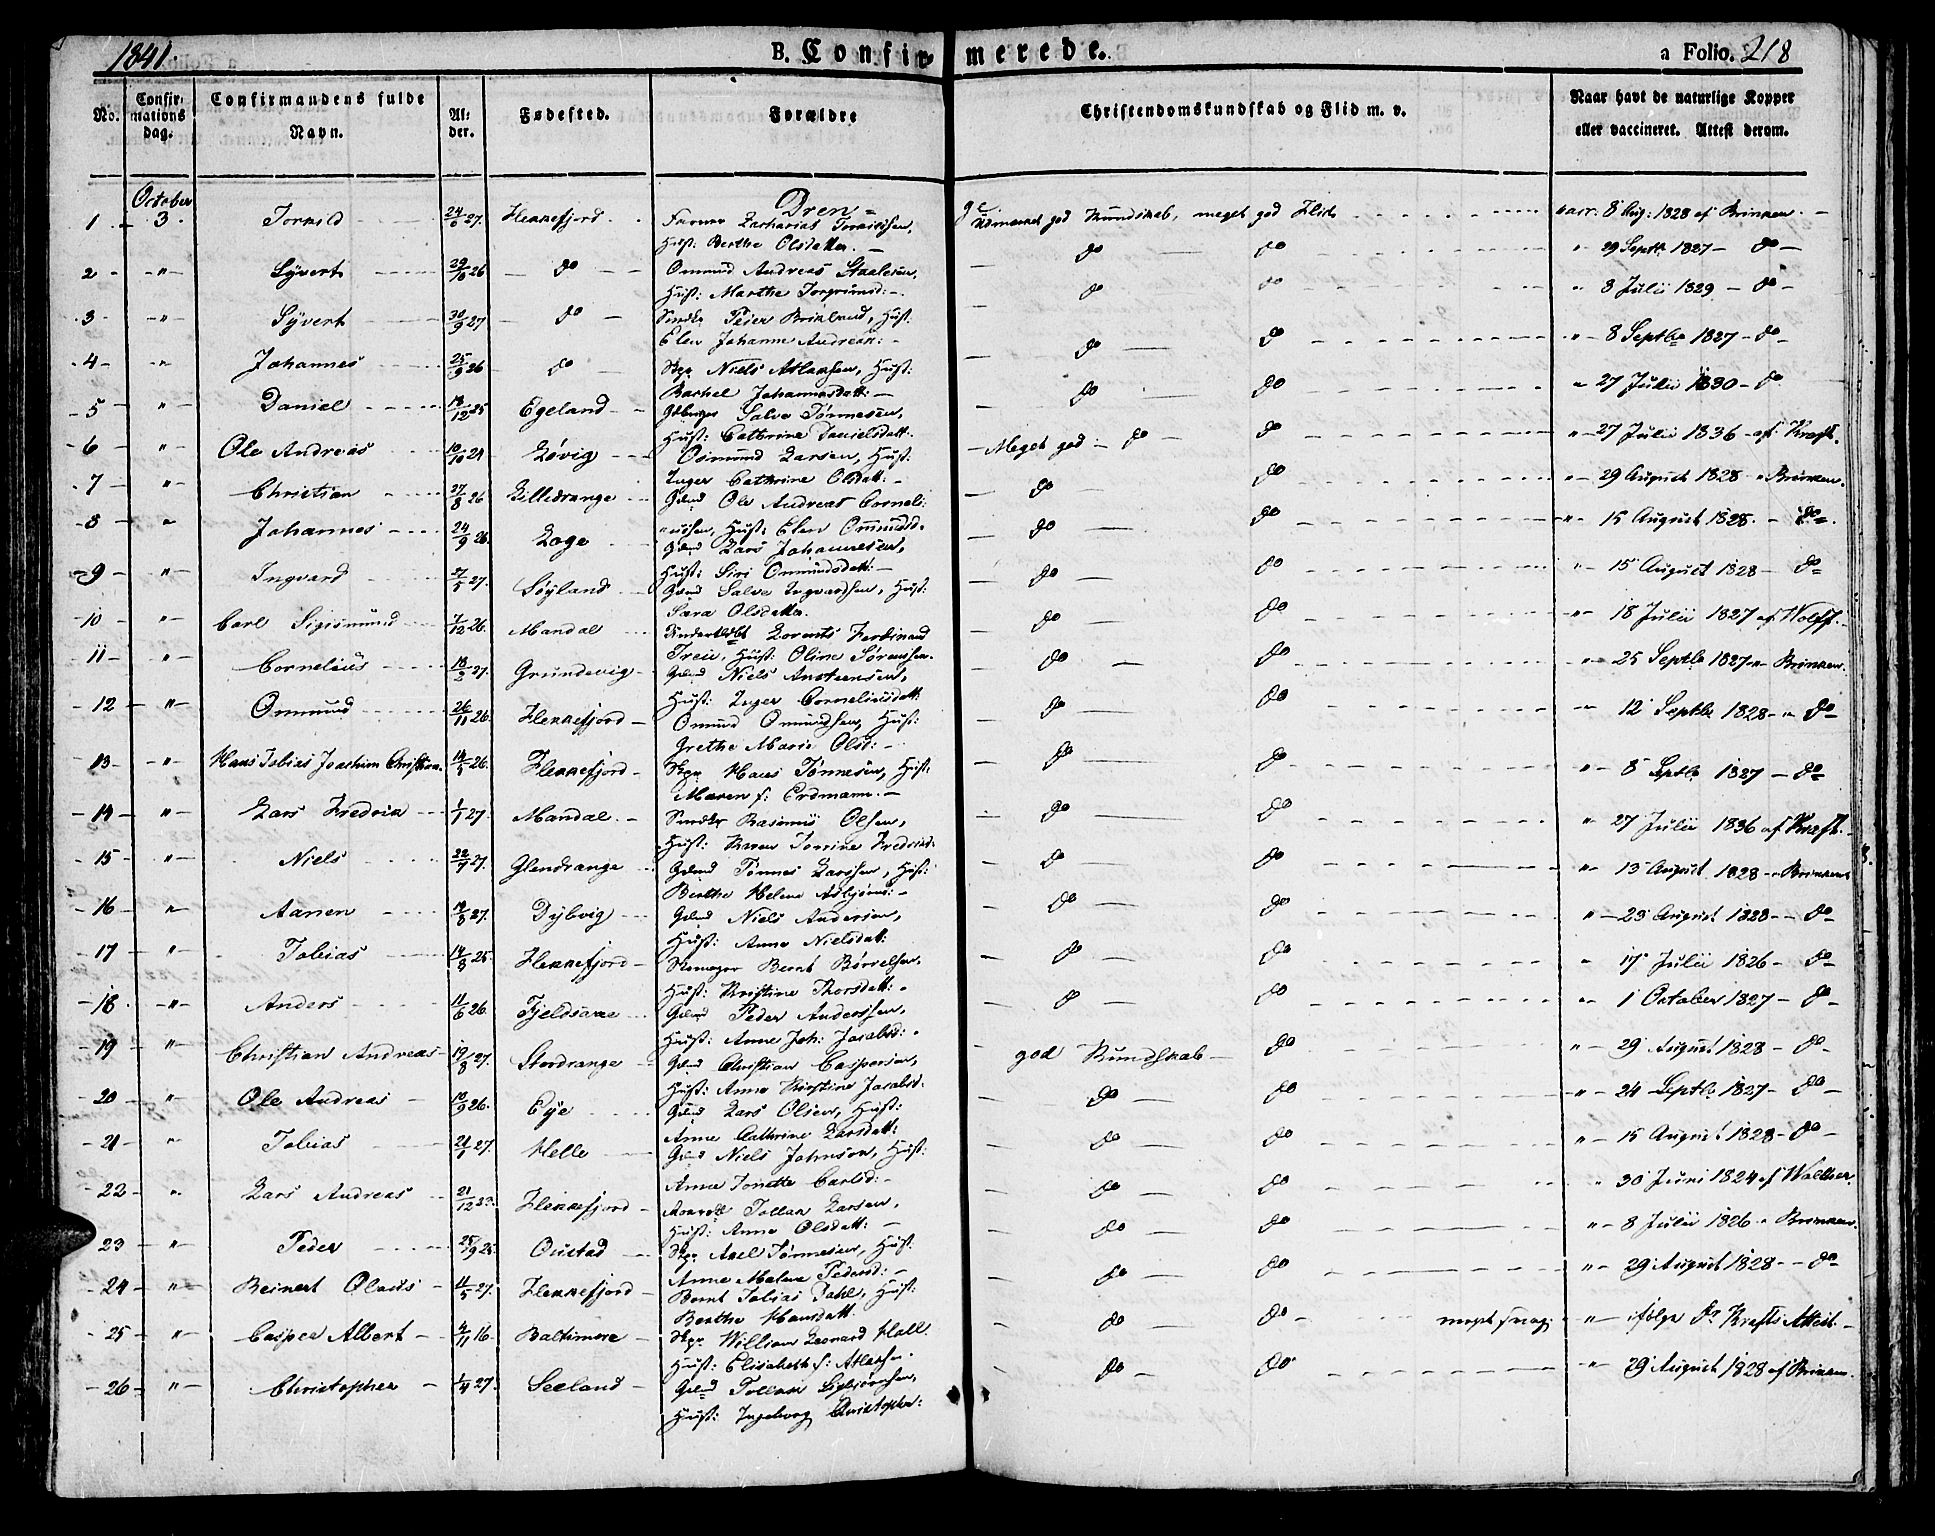 1841.
B. Confirmerede.
a Folio. 218
No.
Confirmations dag.
Confirmandens fulde Navn.
Alder.
Fødested.
Forældre
Christendomskundskab og Flid m. v.
Naar havt de naturlige Kopper eller vaccineret. Attest derom.
October
Dren
1 3. Torkild 24/6 27. Flekkefjord Zacharias Torkildsen, Hust: Berthe Olsdatter. Udmærket god Kundskab, meget god Flid vacc. 8 Aug: 1828 af Brinken.
2 " Syvert 29/10 26 do Ommund Andreas Staalesen, Hust: Marthe Torgrimsd: do do " 29 Septb 1827 do
3 " Syvert 30/9 27 do Peder Brinland, Hust: Elen Johanne Andreas: do do " 8 Julii 1829 do
4 " Johannes 25/9 26 do Skpr Niels Atlaksen, Hust: Rachel Johannesdatt: do do " 8 Septbr 1827 do
5 " Daniel 18/12 25 Egeland Salve Tønnesen, Hust: Cathrine Danielsdatt. do do " 27 Julii 1830 do
6 " Ole Andreas 10/10 24 Løvig Osmund Larsen, Hust: Inger Cathrine Olsdatt: Meget god do do " 27 Julii 1836 af Kraft.
7 " Christian 27/8 26 Lilledrange Gmd Ole Andreas Corneliussen, Hust: Elen Ommundsd. do do " 29 August 1828 " Brinken.
8 " Johannes 24/9 26. Loge Gmd Lars Johannesen, Hust: Siri Ommundsdatt: do do " 15 August 1828. do
9 " Ingvard 27/5 27. Søyland Gmd Salve Ingvardsen, Hust: Sara Olsdatter do do " 15 August 1828 do
10 " Carl Sigismund 7/12 26. Mandal Lorents Ferdinand Hust: Oline Sørensen. do do " 18 Julii 1827 af Wolff.
11 " Cornelius 18/2 27. Grundevig Gmd Niels Hust: Inger Corneliusdatt: do do " 25 Septbr 1827 " Brinken.
12 " Ommund 26/11 26. Flekkefjord Ommund Ommundsen, Hust: Grethe Marie Olsd: do do " 12 Septbr 1828 " do
13 " Hans Tobias Joachim Christian 26. Flekkefjord Skpr Hans Tønnesen, Hust: Maren f: Erdmann. do do " 8 Septbr 1827 do
14 " Lars Fredrik 1/1 27. Mandal Rasmus Olsen, Hust: Karen Torine Fredriks: do do " 27 Julii 1836 af Kraft.
15 " Niels 22/7 27. Glendrange Gmd Tønnes Larssen, Hust: Berthe Helene Asbjørns: do do " 13 August 1828 " Brinken
16 " Aanen 27. Dybvig Gmd Niels Andersen, Hust: Anne Nielsdatt: do do " 23 August 1828 do
17 " Tobias 14/3 25. Flekkefjord Skomager Bernt Børrelsen, Hust: Kristine Thorsdatt: do do " 17 Julii 1826 do
18. " Anders 11/6 26. Fjeldsaae Gmd Peder Anderssen, Hust: Anne Joh: Jacobsd: do do " 1 October 1827 do
19 " Christian Andreas 19/8 27. Stordrange Gmd Christian Caspersen, Hust: Anne Kirstine Jacobsd: god Kundskab do " 29 August 1828 do
20 " Ole Andreas 10/9 26. Eye Gmd Lars Olsen, Hust: Anne Cathrine Larsdatt: do do " 24 Septbr 1827 do
21 " Tobias 21/1 27. Helle Gmd Niels Johnson, Hust: Anne Tonette Carlsd: do do " 15 August 1828 do
22 " Lars Andreas 21/12 23. Flekkefjord Tollak Larsen, Hust: Anne Olsdatt: do do " 30 Juni 1824 af Walther.
23 " Peder 25/9 25. Oustad Skpr Axel Tønnesen, Hust: Anne Malene Pedersd: do do " 8 Julii 1826 " Brinken.
24 " Reinert Olaus 4/5 27. Flekkefjord Bernt Tobias Dahl, Hust: Berthe Hansdatt do do " 29 August 1828 do
25 " Casper Albert 4/11 16. Baltimore Skpr William Leonard Hall. Hust: Elisabeth f: Atlaksen. do do " ifølge Dr Krafts Attest
26 " Christopher 1/4 27. Seeland Gmd Tollak Sigbjørnsen, Hust: Ingeborg Christopher: do do 29 August 1828 af Brinken.